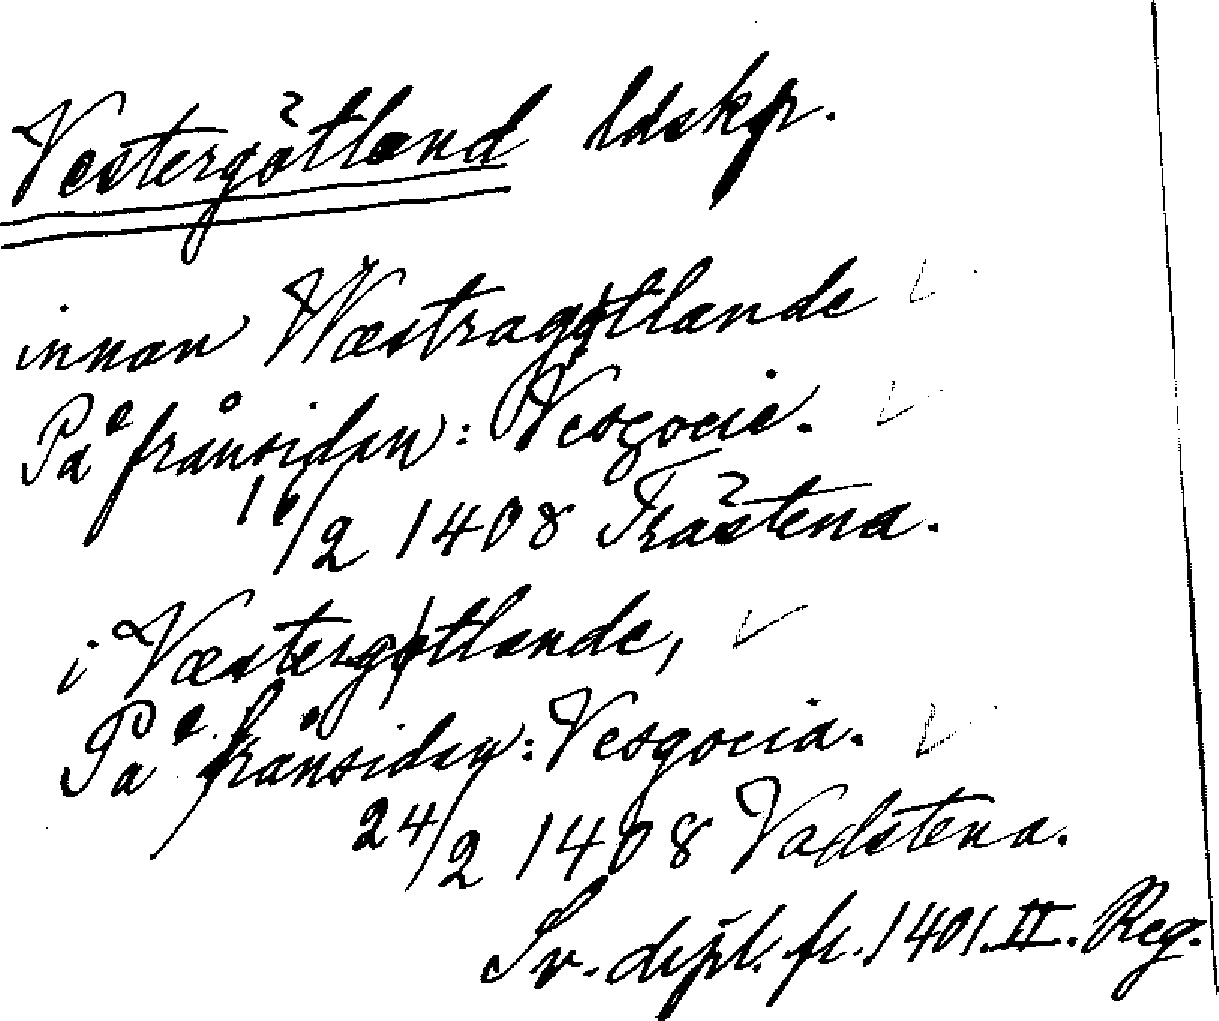 Vestergötland ldskp.
innan Wæstragøtlande
På frånsidan: Vesgocie.
16/2 1408 Trästena.
i Væstergøtlande,
På frånsidan: Vesgocia.
24/2 1408 Vadstena.
Sv. dipl. fr. 1401. II. Reg.